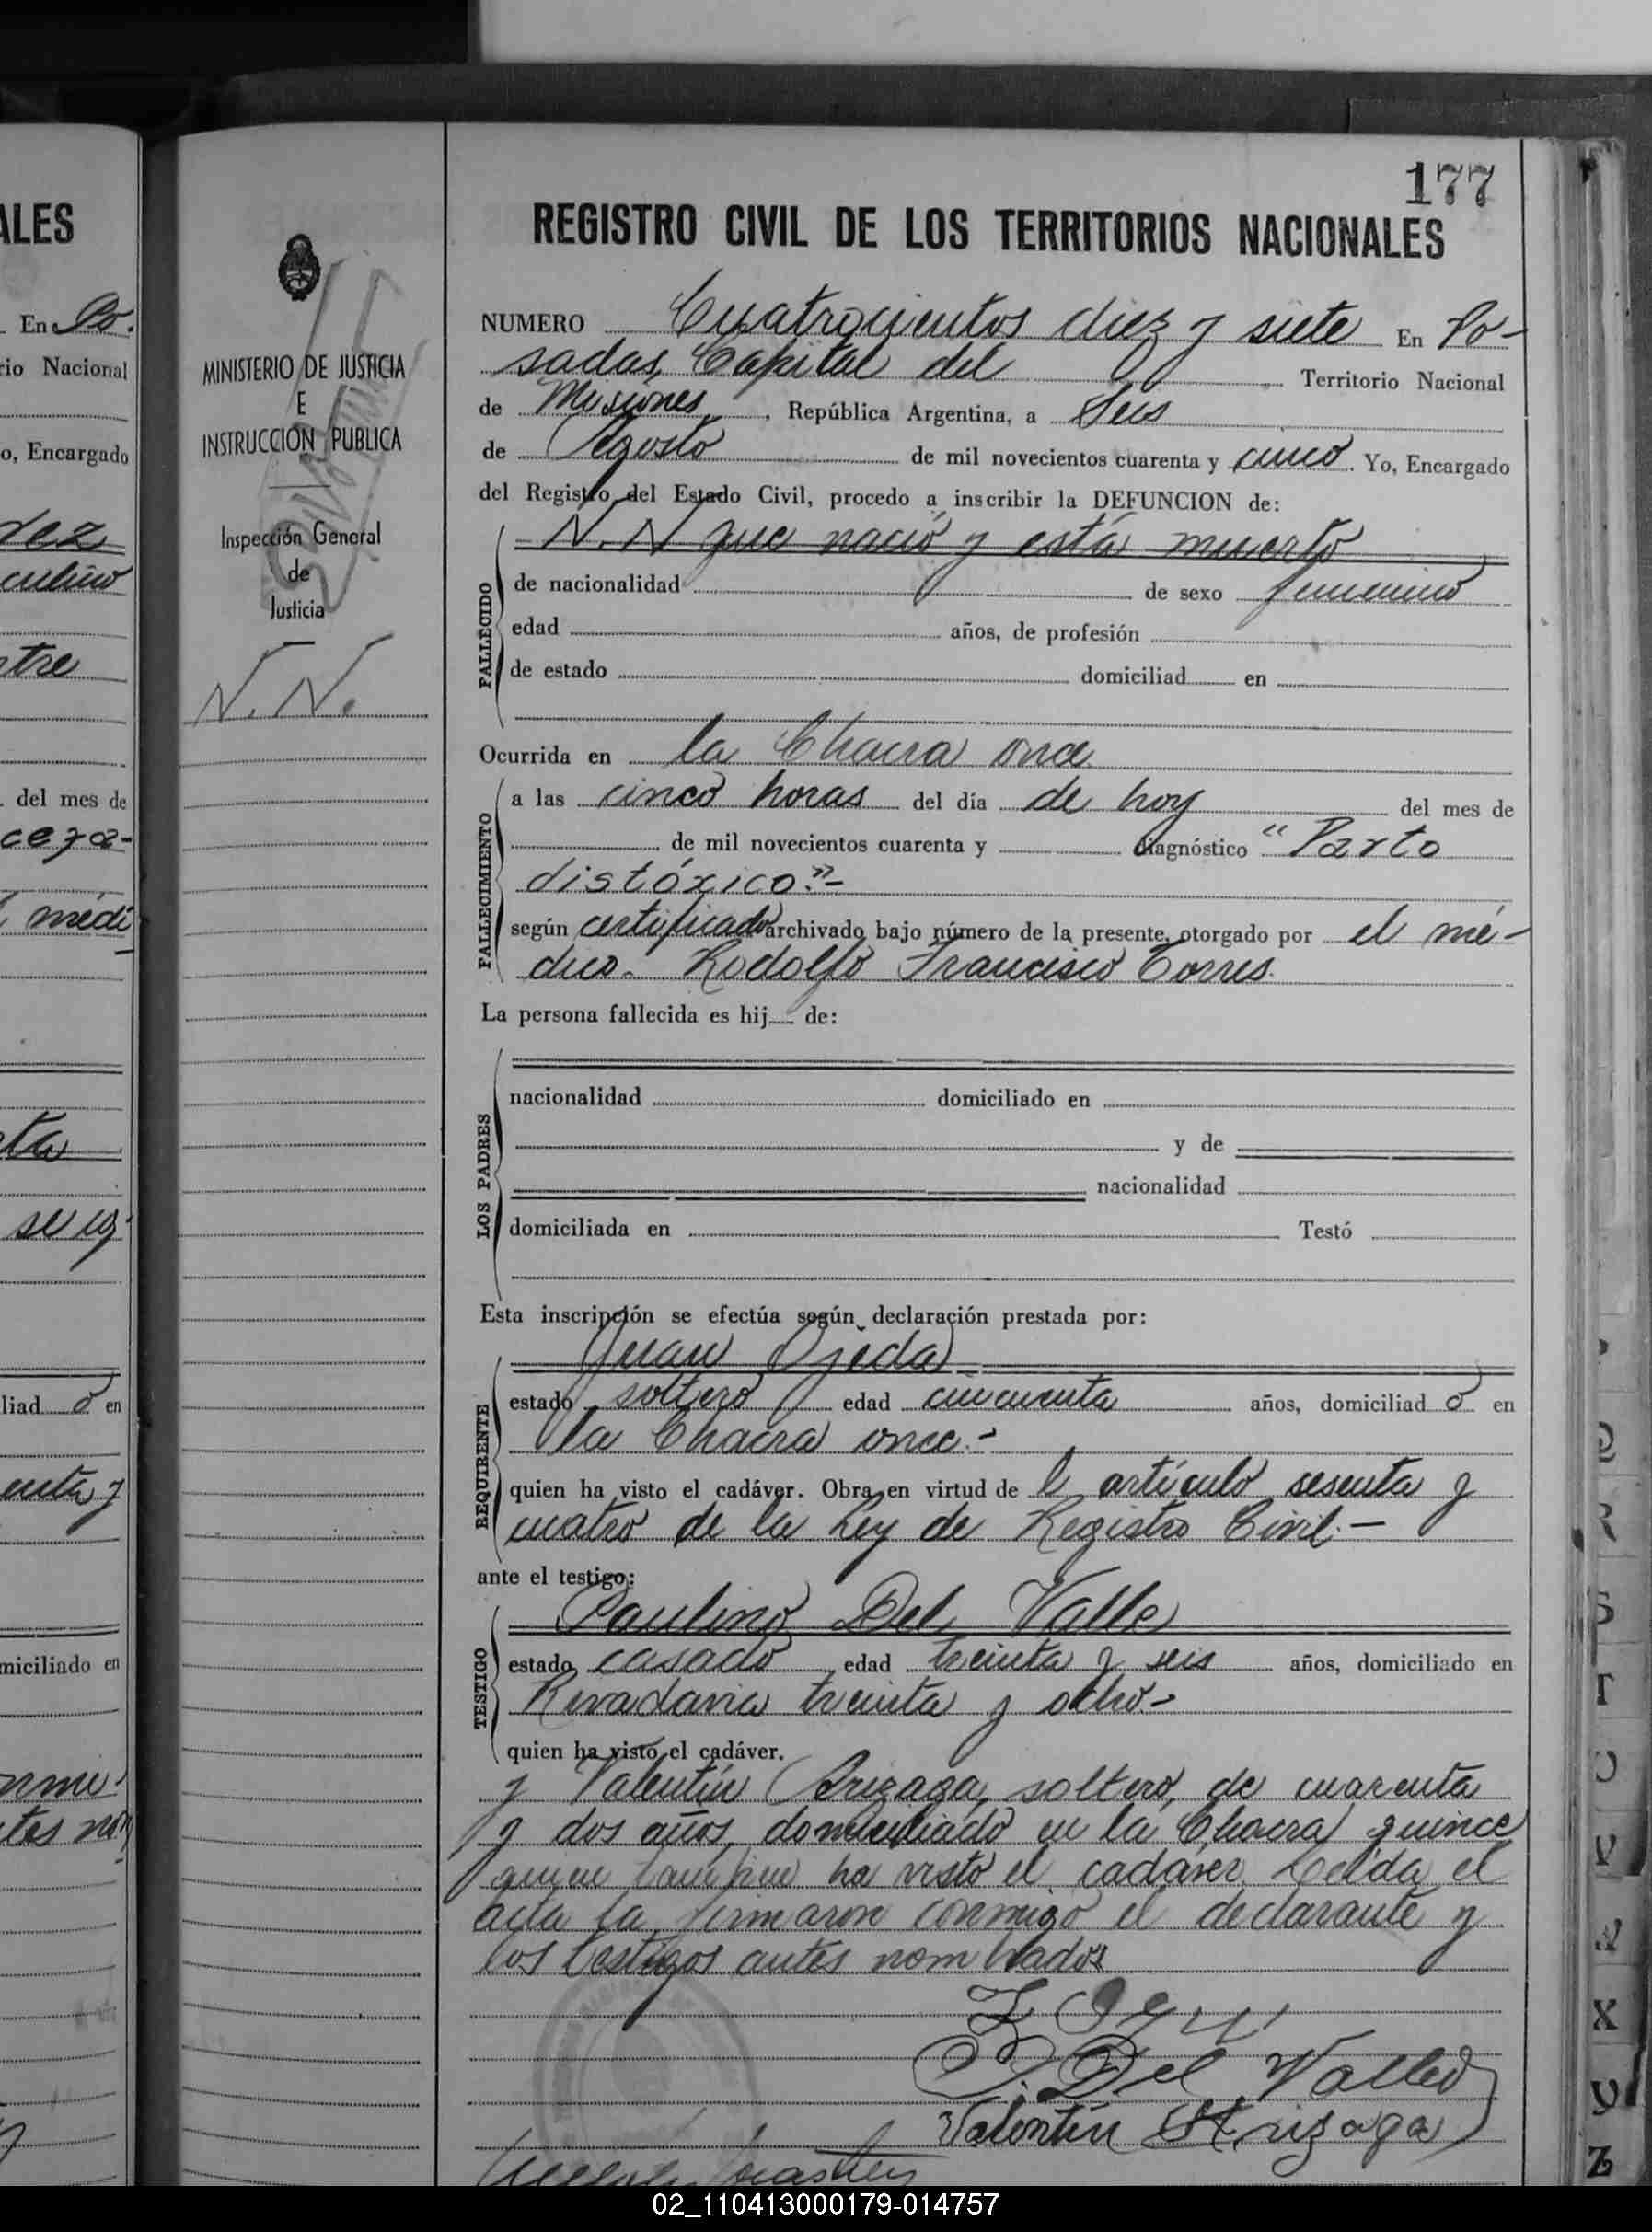 177
ALES
REGISTRO CIVIL DE LOS TERRITORIOS NACIONALES
En Po-
rio Nacional
o, Encargado
dez
culino
ntre
del mes de
ceza-
médi
eta
liad o en
enta y
miciliado en
MINISTERIO DE JUSTICIA
E
INSTRUCCION PUBLICA
Inspección General
de
Justicia
N. N.
NUMERO Cuatrocientos diez y siete En Po-
sadas, Capital del Territorio Nacional
de Misiones, República Argentina, a Seis
de Agosto de mil novecientos cuarenta y cinco. Yo, Encargado
del Registro del Estado Civil, procedo a inscribir la DEFUNCION de:
N. N que nació y está muerto
FALLECIDO
de nacionalidad de sexo femenino
edad años, de profesión
de estado domiciliad en
Ocurrida en la Chacra once
FALLECIMIENTO
a las cinco horas del día de hoy del mes de
de mil novecientos cuarenta y diagnóstico "Parto
distóxico."-
según certificado archivado bajo número de la presente, otorgado por el mé-
dico. Rodolfo Francisco Torres.
La persona fallecida es hij de:
LOS PADRES
nacionalidad domiciliado en
y de
nacionalidad
domiciliada en Testó
Esta inscripción se efectúa según declaración prestada por:
Juan Ojeda
REQUIRENTE
estado soltero edad cincuenta años, domiciliad o en
la Chacra once.-
quien ha visto el cadáver. Obra en virtud de l artículo sesenta y
cuatro de la Ley de Registro Civil.-
ante el testigo:
Paulino Del Valle
TESTIGO
estado casado edad treinta y seis años, domiciliado en
Rivadavia treinta y ocho-
quien ha visto el cadáver.
y Valentín Arizaga, soltero, de cuarenta
y dos años, domiciliado en la Chacra quince
quien tambien ha visto el cadáver. Leida el
acta la firmaron conmigo el declarante y
los testigos antes nombrados
P. Del Valle
Valentín Arizaga
Q
R
S
T
U
V
X
Y
Z
02_110413000179-014757